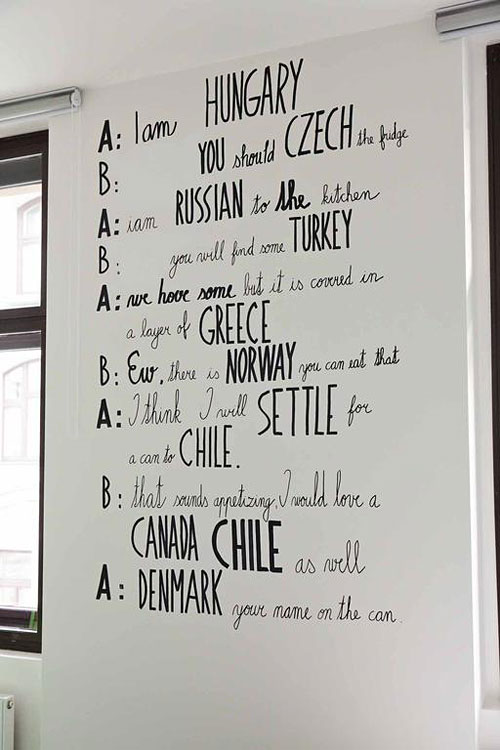 A: I am HUNGARY
B: YOU should CZECH the fridge
A: iam RUSSIAN to the kitchen
B: you will find some TURKEY
A: we have some but it is covered in
a layer of GREECE
B: Ew, there is NORWAY you can eat that
A: I think I will SETTLE for
a can to CHILE.
B: that sounds appetizing, I would love a
CANADA CHILE as well
A: DENMARK your name on the can.